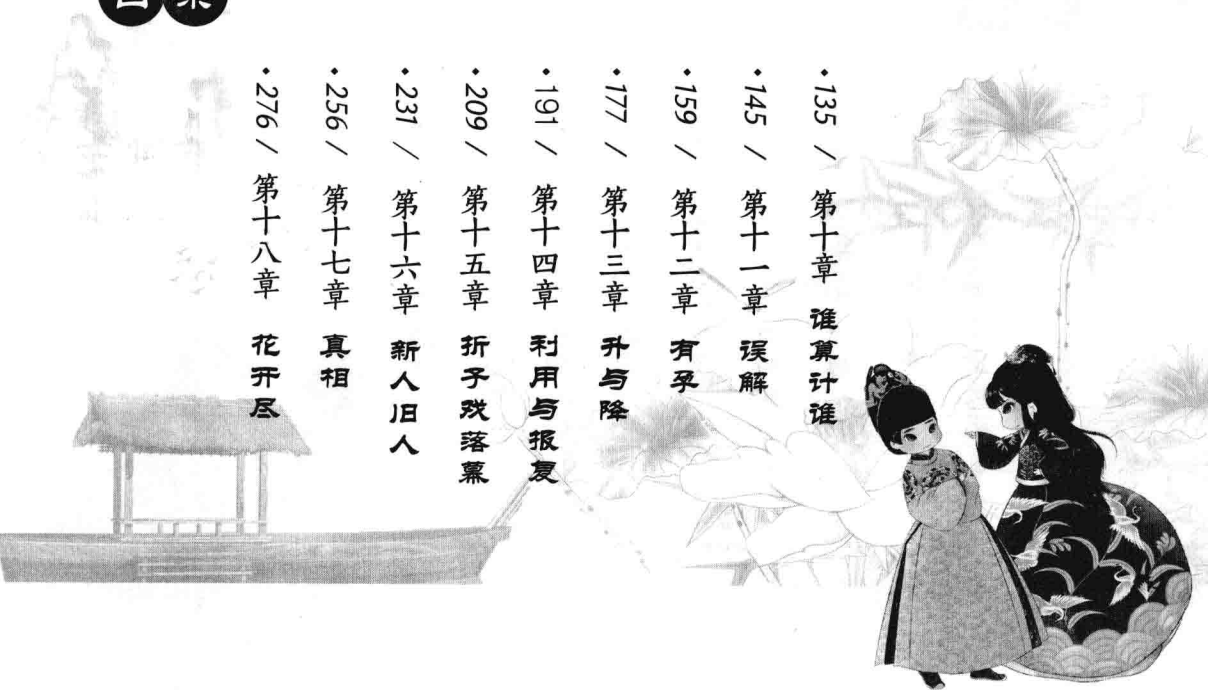 ·135 / 第十章 谁算计谁
·145 / 第十一章 误解
·159 / 第十二章 有孕
·177 / 第十三章 升与降
·191 / 第十四章 利用与报复
·209 / 第十五章 折子戏落幕
·231 / 第十六章 新人旧人
·256 / 第十七章 真相
·276 / 第十八章 花开尽